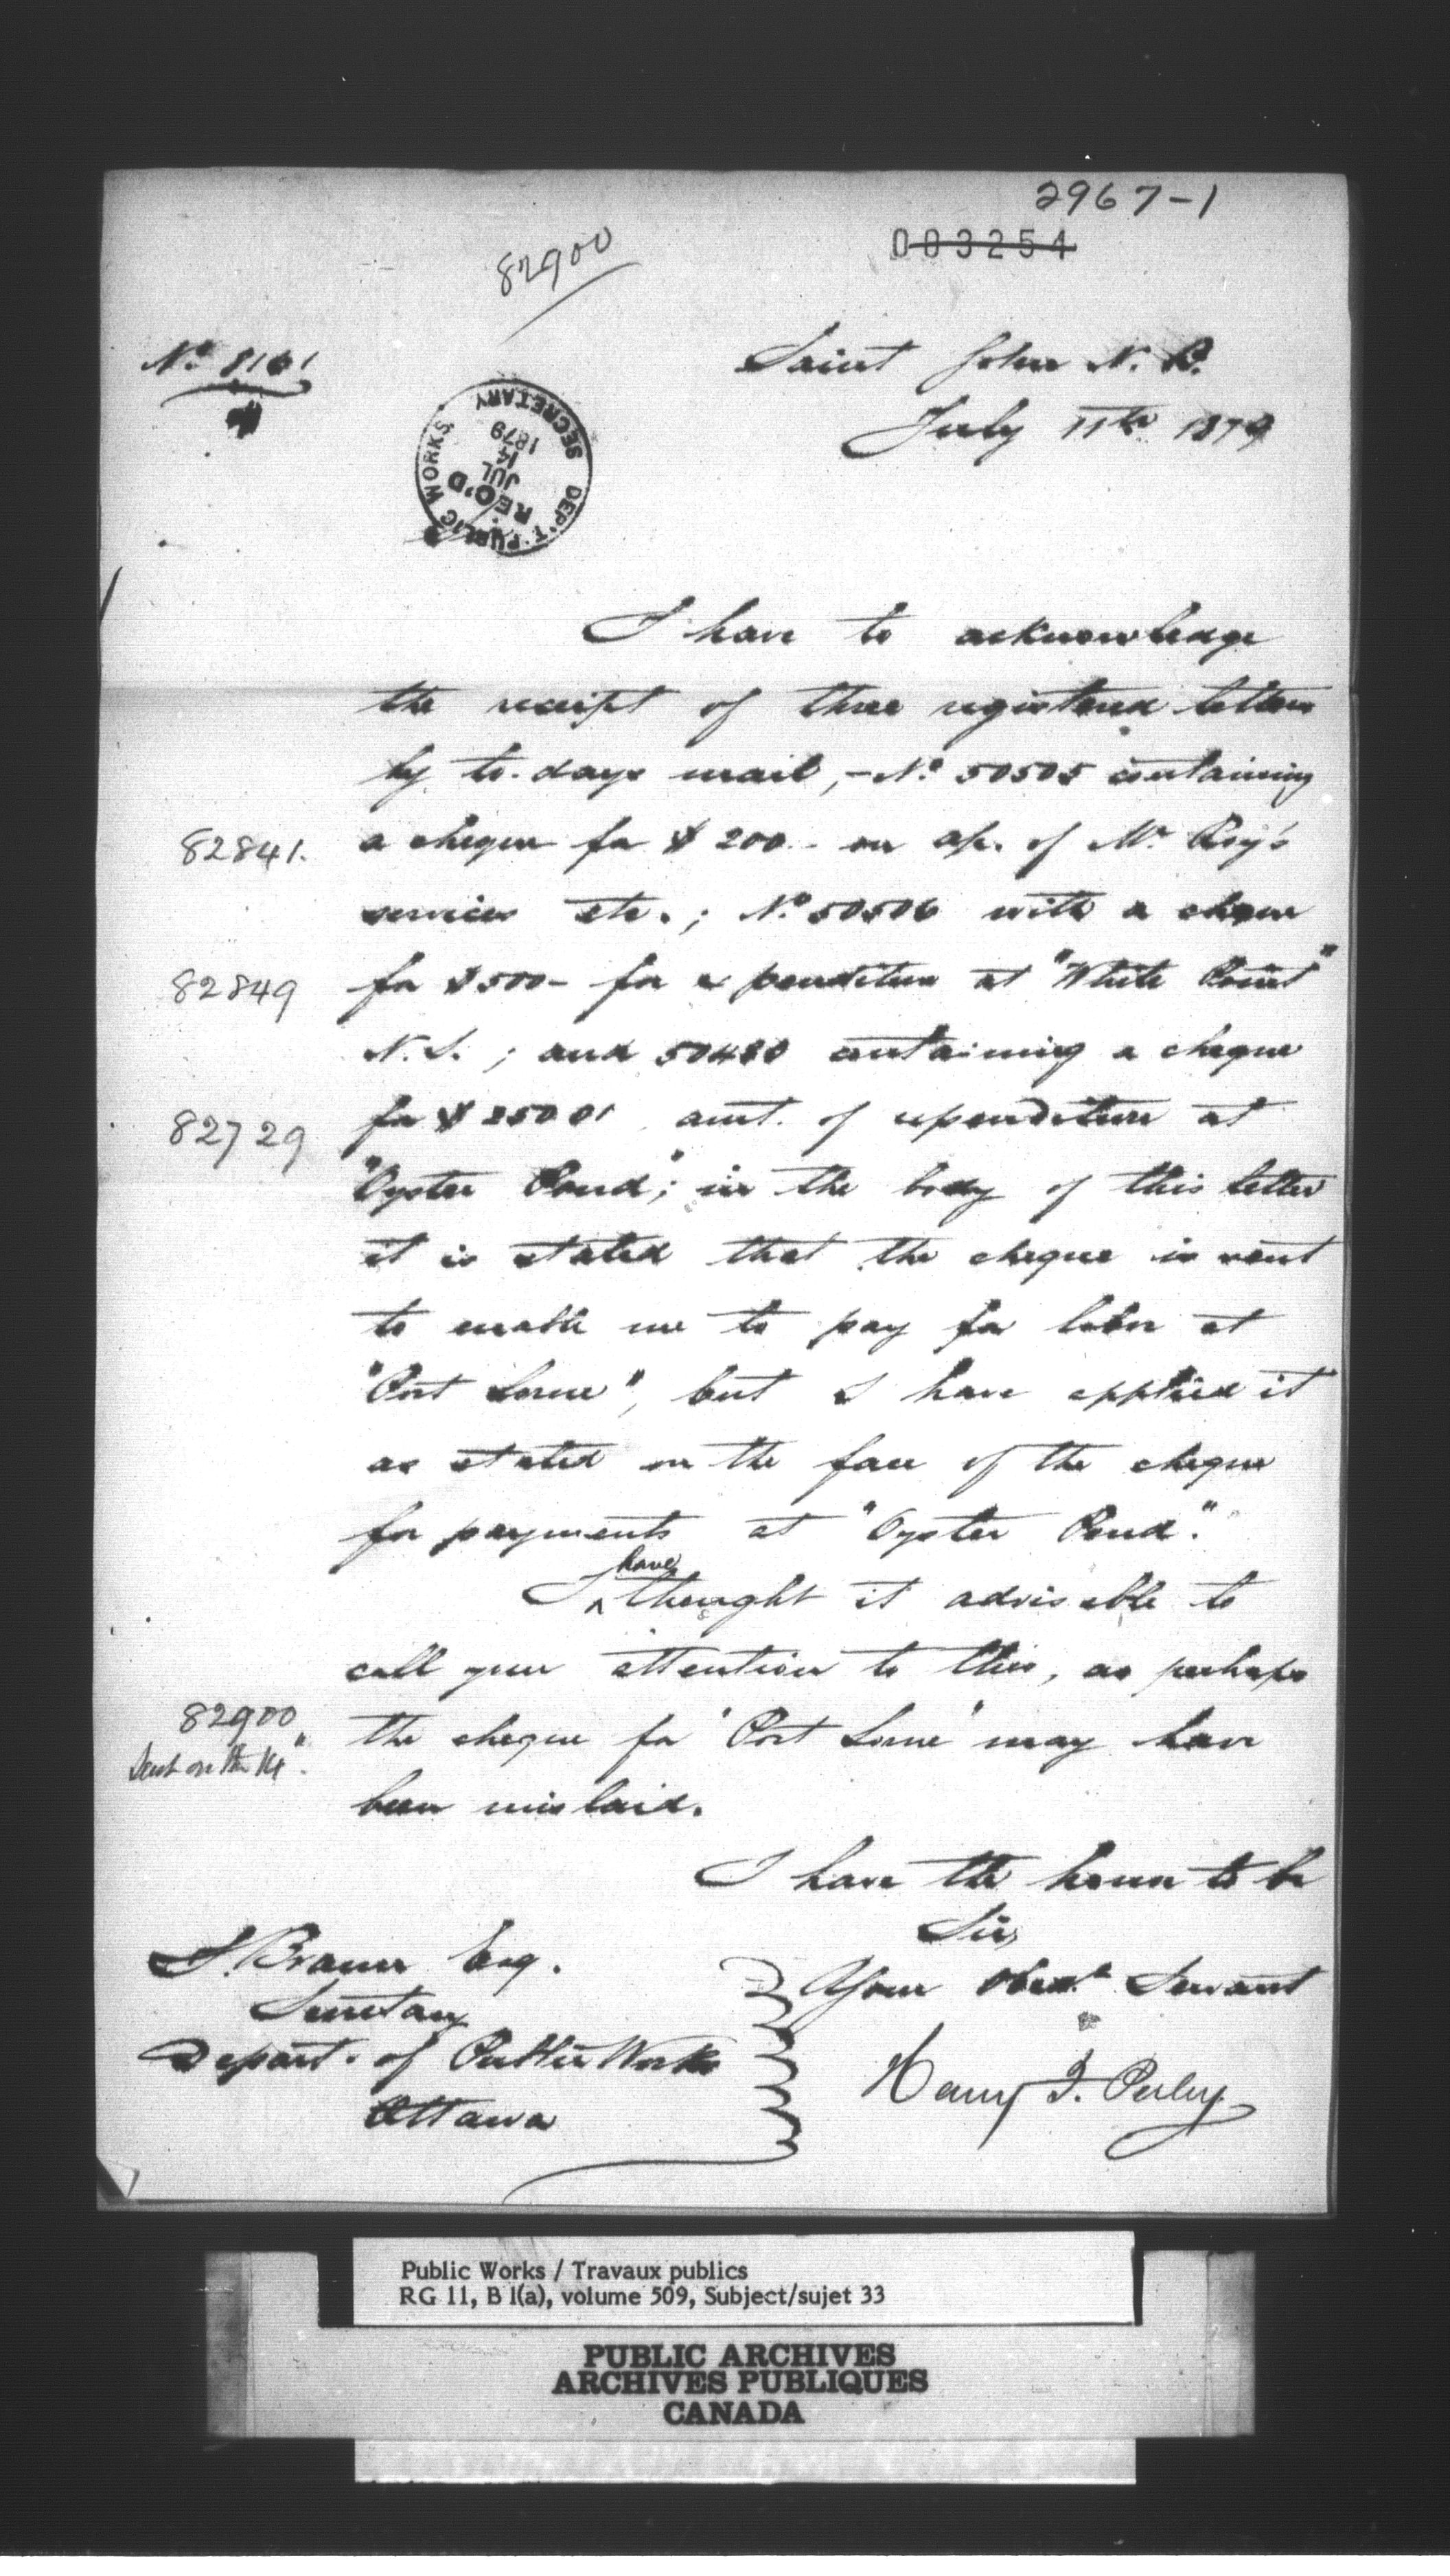 2967-1
003254
82900
No. 8161
Saint John N. B.
July 11th 1879
DEP'T. PUBLIC WORKS. SECRETARY
REC'D
JUL
14
1879
I have to acknowledge
the receipt of three registered letters
by to-days mail, - No. 50505 containing
82841.
a cheque for $ 200 - on a/c. of Mr Roy's
services etc. ; No. 50506 with a cheque
82849
for $500- for expenditure at "White Point"
N.S. ; and 50480 containing a cheque
82729
for $ 250 01 amt. of expenditure at
"Oyster Pond"; in the body of this letter
it is stated that the cheque is sent
to enable me to pay for labor at
"Port Lorne", but I have applied it
as stated on the face of the cheque
for payments at "Oyster Pond".
I have thought it advisable to
call your attention to this, as perhaps
82900
Sent on the 14".
the cheque for "Port Lorne" may have
been mislaid.
I have the honor to be
Sir,
Your Obedt. Servant
Henry F. Perley
S. Braun Esq.
Secretary
Depart. of Public Works
Ottawa
Public Works / Travaux publics
RG 11, B 1(a), volume 509, Subject/sujet 33
PUBLIC ARCHIVES
ARCHIVES PUBLIQUES
CANADA